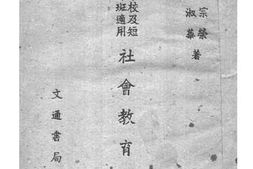 宗榮
淑華 著
校及短
班適用
社會教育
文通書局